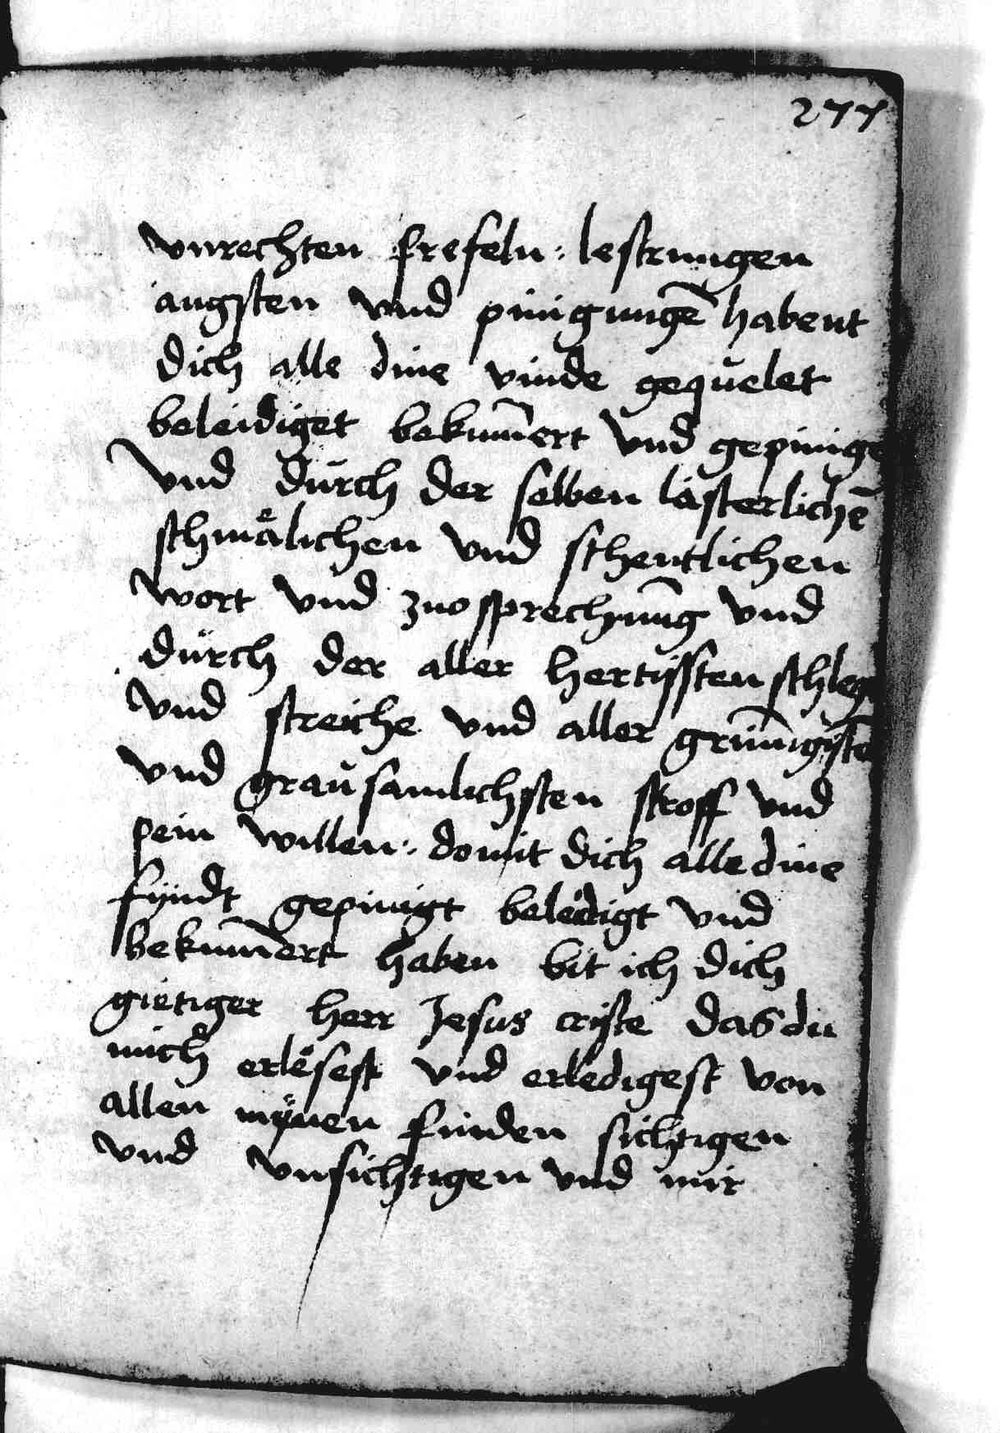 277
vnrechten frefeln · lestrungen
angsten vnd pinigungē habent
dich alle dine vinde gequelet
beleidiget bekum̄ert vnd gepinige
vnd dŭrch der selben lästerlichē
schmaͤlichen vnd schentlichen
wort vnd zuosprechnu̅g vnd
dŭrch der aller hertissten schleg
vnd streiche vnd aller grim̄igiste
vnd graŭsamlichsten stroff vnd
pein willen · domit dich alle dine
fyndt gepinigt beledigt vnd
bekum̄ert haben bit ich dich
gietiger herr Jesus criste das du
mich erlësest vnd erledigest von
allen mÿnen finden sichtigen
vnd vnsichtigen vnd mir